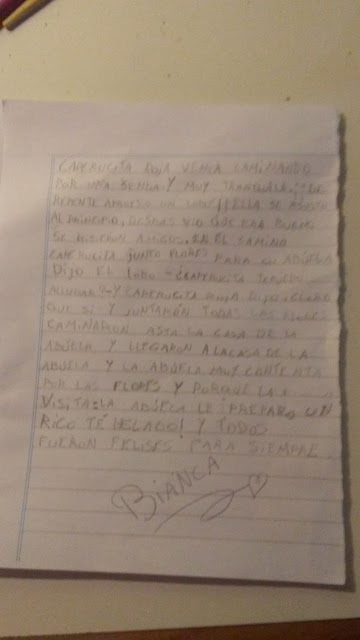 CAPERUCITA ROJA VENIA CAMINANDO
POR UNA SENDA Y MUY TRANQUILA. DE
REPENTE APARESIO UN LOBO ELLA SE ASUSTO
AL PRINCIPIO, DESPUES VIO QUE ERA BUENO
SE HISIERON AMIGOS. EN EL CAMINO
CAPERUCITA JUNTO FLORES PARA SU ABUELA
DIJO EL LOBO - CAPERUCITA TE PUEDO
AYUDAR?-Y CAPERUCITA ROJA DIJO: CLARO
QUE SI Y JUNTARON TODAS LAS FLORES
CAMINARON ASTA LA CASA DE LA
ABUELA Y LLEGARON A LA CASA DE LA
ABUELA Y LA ABUELA MUY CONTENTA
POR LAS FLORES Y PORQUE LA
VISITA: LA ABUELA LE PREPARO UN
RICO TÉ HELADO! Y TODOS
FUERON FELISES PARA SIEMPRE.
BIANCA